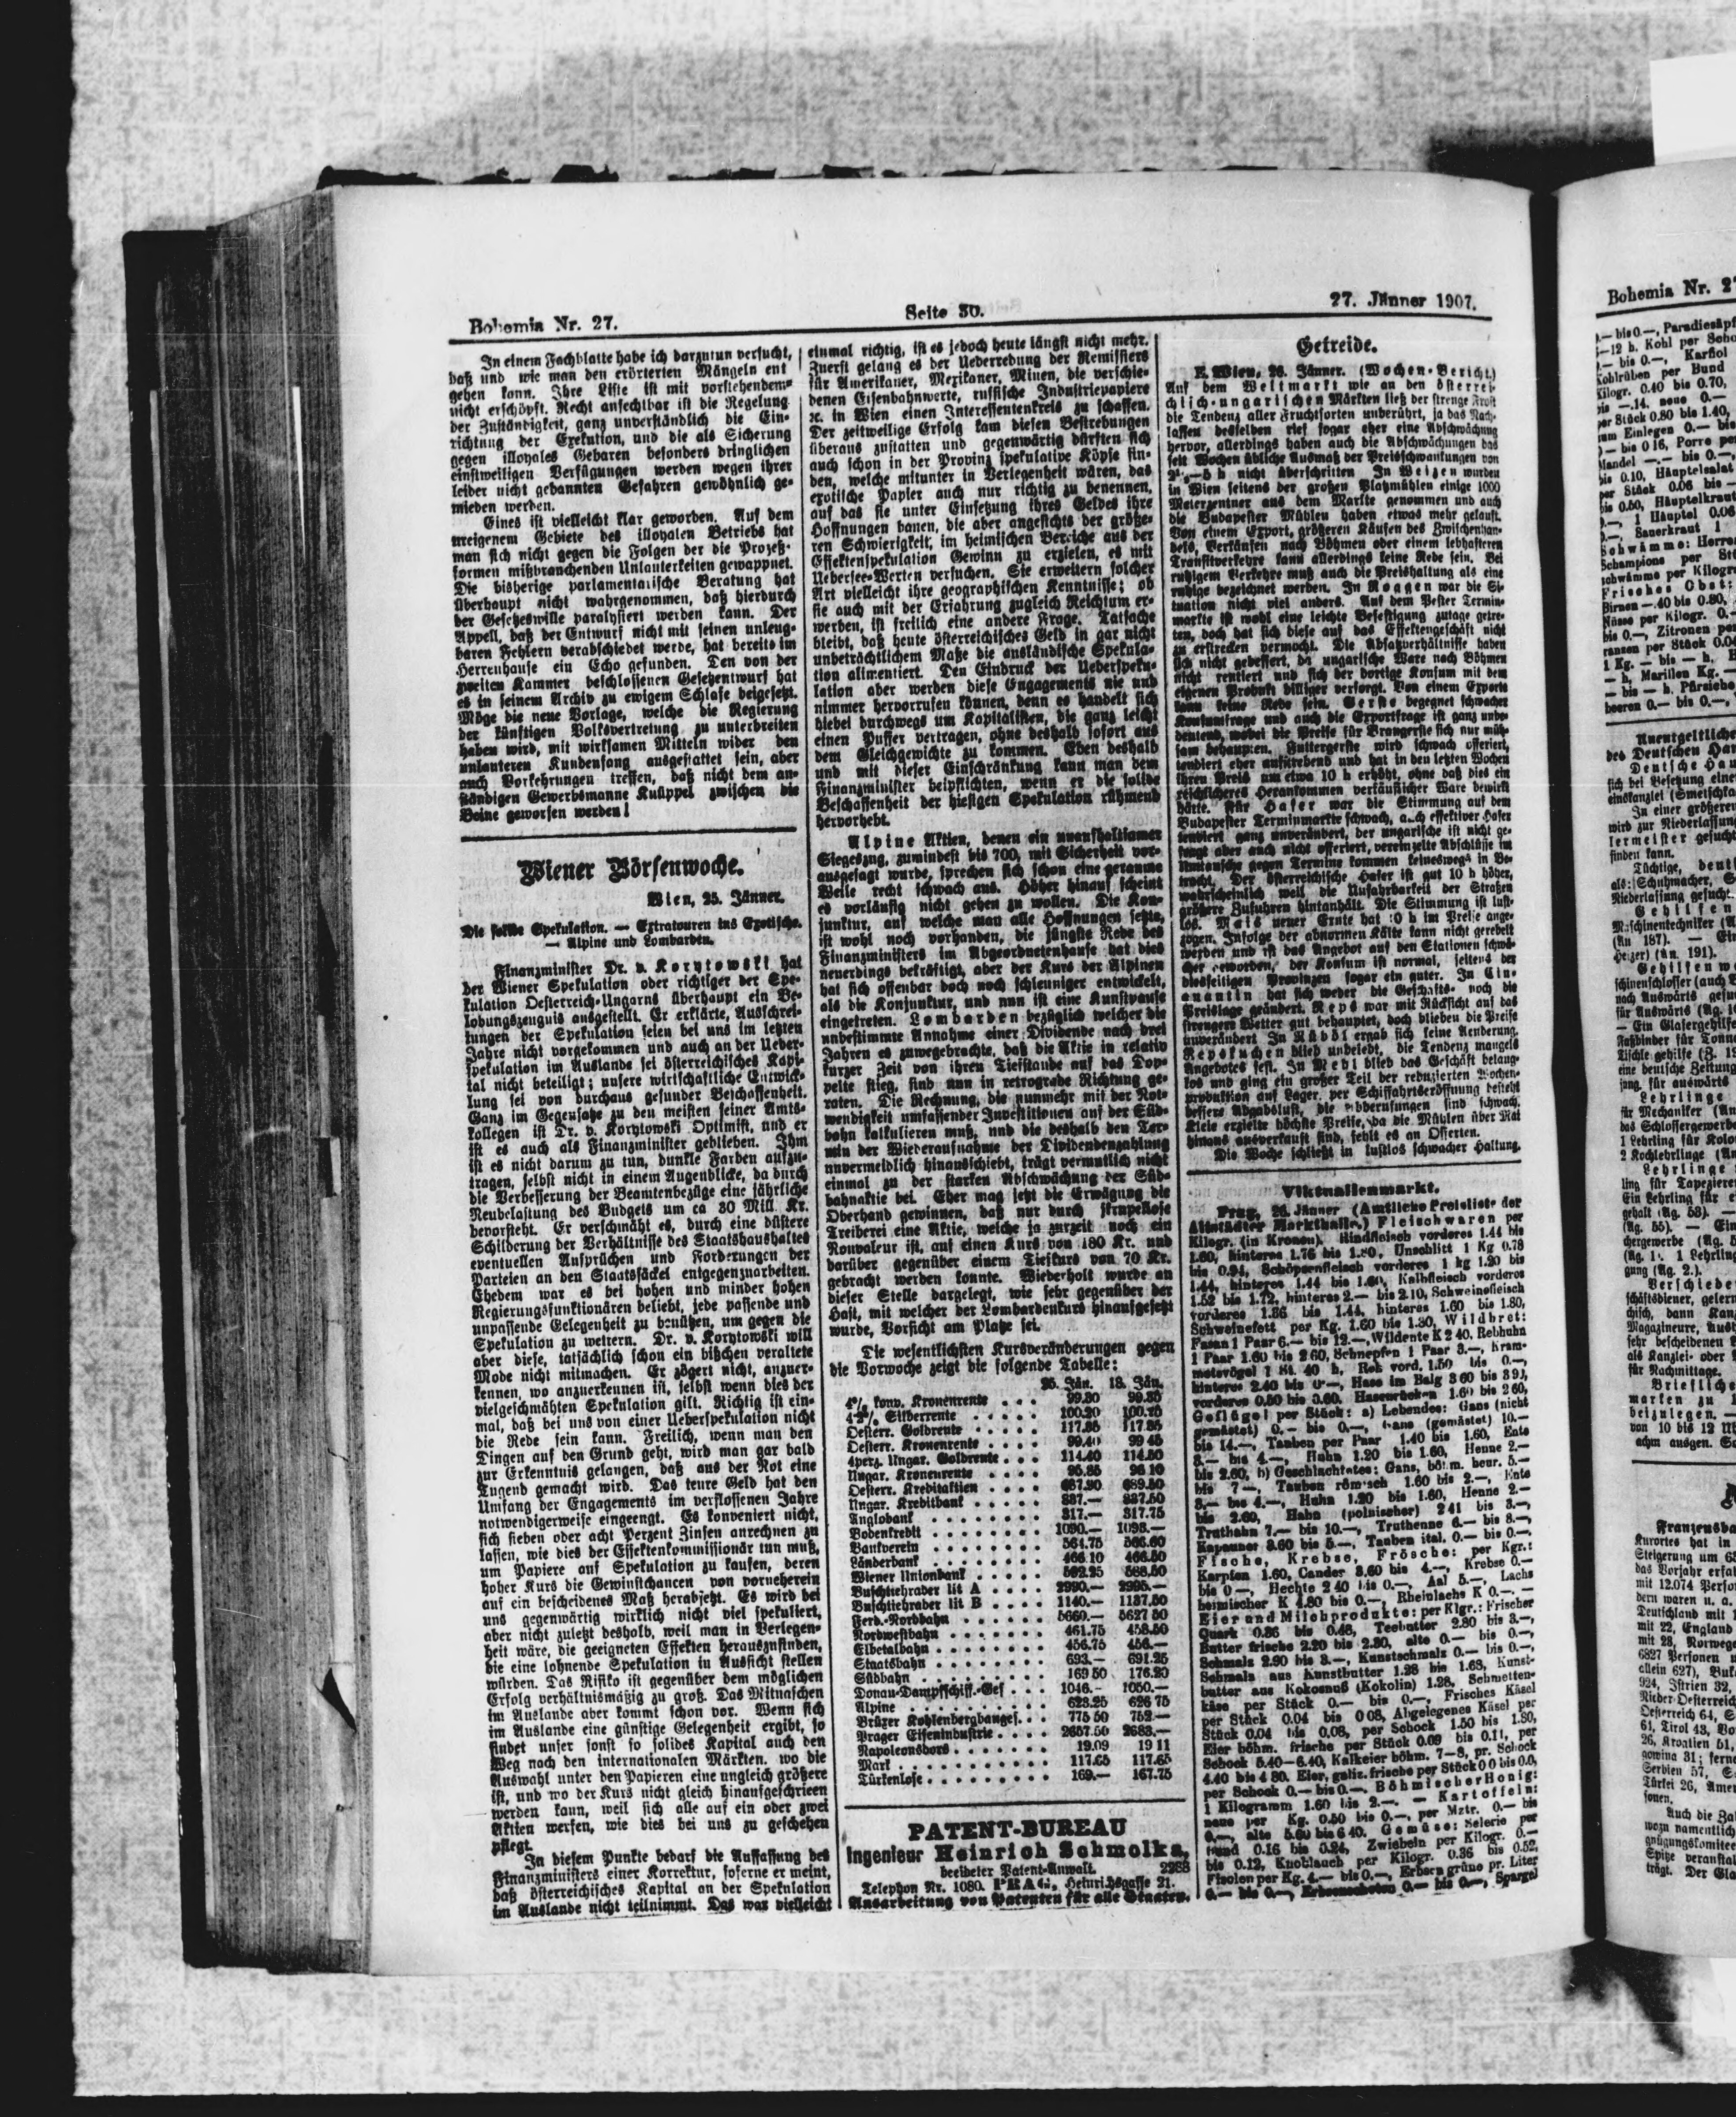 Bohemia Nr. 27.
Seite 30.
27. Jänner 1907.
In einem Fachblatte habe ich darzutun versucht,
daß und wie man den erörterten Mängeln ent
gehen kann. Ihre Liste ist mit vorstehendem
nicht erschöpft. Recht anfechtbar ist die Regelung
der Zuständigkeit, ganz unverständlich die Ein-
richtung der Exekution, und die als Sicherung
gegen illoyales Gebaren besonders dringlichen
einstweiligen Verfügungen werden wegen ihrer
leider nicht gebannten Gefahren gewöhnlich ge-
mieden werden.
Eines ist vielleicht klar geworden. Auf dem
ureigenem Gebiete des illoyalen Betriebs hat
man sich nicht gegen die Folgen der die Prozeß-
formen mißbrauchenden Unlauterkeiten gewappnet.
Die bisherige parlamentarische Beratung hat
überhaupt nicht wahrgenommen, daß hierdurch
der Gesetzeswille paralysiert werden kann. Der
Appell, daß der Entwurf nicht mit seinen unleug-
baren Fehlern verabschiedet werde, hat bereits im
Herrenhause ein Echo gefunden. Den von der
zweiten Kammer beschlossenen Gesetzentwurf hat
es in seinem Archiv zu ewigem Schlafe beigesetzt.
Möge die neue Vorlage, welche die Regierung
der künftigen Volksvertretung zu unterbreiten
haben wird, mit wirksamen Mitteln wider den
unlauteren Kundenfang ausgestattet sein, aber
auch Vorkehrungen treffen, daß nicht dem an-
ständigen Gewerbsmanne Knüppel zwischen die
Beine geworfen werden!
Wiener Börsenwoche.
Wien, 25. Jänner.
Die solide Spekulation. — Extratouren ins Exotische.
— Alpine und Lombarden.
Finanzminister Dr. v. Korytowski hat
der Wiener Spekulation oder richtiger der Spe-
kulation Oesterreich-Ungarns überhaupt ein Be-
lobungszeugnis ausgestellt. Er erklärte, Ausschrei-
tungen der Spekulation seien bei uns im letzten
Jahre nicht vorgekommen und auch an der Ueber-
spekulation im Auslande sei österreichisches Kapi-
tal nicht beteiligt; unsere wirtschaftliche Entwick-
lung sei von durchaus gesunder Beschaffenheit.
Ganz im Gegensatze zu den meisten seiner Amts-
kollegen ist Dr. v. Korytowski Optimist, und er
ist es auch als Finanzminister geblieben. Ihm
ist es nicht darum zu tun, dunkle Farben aufzu-
tragen, selbst nicht in einem Augenblicke, da durch
die Verbesserung der Beamtenbezüge eine jährliche
Neubelastung des Budgets um ca 30 Mill. Kr.
bevorsteht. Er verschmäht es, durch eine düstere
Schilderung der Verhältnisse des Staatshaushaltes
eventuellen Ansprüchen und Forderungen der
Parteien an den Staatssäckel entgegenzuarbeiten.
Ehedem war es bei hohen und minder hohen
Regierungsfunktionären beliebt, jede passende und
unpassende Gelegenheit zu benützen, um gegen die
Spekulation zu wettern. Dr. v. Korytowski will
aber diese, tatsächlich schon ein bißchen veraltete
Mode nicht mitmachen. Er zögert nicht, anzuer-
kennen, wo anzuerkennen ist, selbst wenn dies der
vielgeschmähten Spekulation gilt. Richtig ist ein-
mal, daß bei uns von einer Ueberspekulation nicht
die Rede sein kann. Freilich, wenn man den
Dingen auf den Grund geht, wird man gar bald
zur Erkenntnis gelangen, daß aus der Not eine
Tugend gemacht wird. Das teure Geld hat den
Umfang der Engagements im verflossenen Jahre
notwendigerweise eingeengt. Es konveniert nicht,
sich sieben oder acht Perzent Zinsen anrechnen zu
lassen, wie dies der Effektenkommissionär tun muß,
um Papiere auf Spekulation zu kaufen, deren
hoher Kurs die Gewinstchancen von vorneherein
auf ein bescheidenes Maß herabsetzt. Es wird bei
uns gegenwärtig wirklich nicht viel spekuliert,
aber nicht zuletzt deshalb, weil man in Verlegen-
heit wäre, die geeigneten Effekten herauszufinden,
die eine lohnende Spekulation in Aussicht stellen
würden. Das Risiko ist gegenüber dem möglichen
Erfolg verhältnismäßig zu groß. Das Mitnaschen
im Auslande aber kommt schon vor. Wenn sich
im Auslande eine günstige Gelegenheit ergibt, so
findet unser sonst so solides Kapital auch den
Weg nach den internationalen Märkten, wo die
Auswahl unter den Papieren eine ungleich größere
ist, und wo der Kurs nicht gleich hinaufgeschrieen
werden kann, weil sich alle auf ein oder zwei
Aktien werfen, wie dies bei uns zu geschehen
pflegt.
In diesem Punkte bedarf die Auffassung des
Finanzministers einer Korrektur, soferne er meint,
daß österreichisches Kapital an der Spekulation
im Auslande nicht teilnimmt. Das war vielleicht
einmal richtig, ist es jedoch heute längst nicht mehr.
Zuerst gelang es der Ueberredung der Remissiers
für Amerikaner, Mexikaner, Minen, die verschie-
denen Eisenbahnwerte, russische Industriepapiere
ꝛc. in Wien einen Interessentenkreis zu schaffen.
Der zeitweilige Erfolg kam diesen Bestrebungen
überaus zustatten und gegenwärtig dürften sich
auch schon in der Provinz spekulative Köpfe fin-
den, welche mitunter in Verlegenheit wären, das
exotische Papier auch nur richtig zu benennen,
auf das sie unter Einsetzung ihres Geldes ihre
Hoffnungen bauen, die aber angesichts der größe-
ren Schwierigkeit, im heimischen Bereiche aus der
Effektenspekulation Gewinn zu erzielen, es mit
Uebersee-Werten versuchen. Sie erweitern solcher
Art vielleicht ihre geographischen Kenntnisse; ob
sie auch mit der Erfahrung zugleich Reichtum er-
werben, ist freilich eine andere Frage. Tatsache
bleibt, daß heute österreichisches Geld in gar nicht
unbeträchtlichem Maße die ausländische Spekula-
tion alimentiert. Den Eindruck der Ueberspeku-
lation aber werden diese Engagements nie und
nimmer hervorrufen können, denn es handelt sich
hiebei durchwegs um Kapitalisten, die ganz leicht
einen Puffer vertragen, ohne deshalb sofort aus
dem Gleichgewichte zu kommen. Eben deshalb
und mit dieser Einschränkung kann man dem
Finanzminister beipflichten, wenn er die solide
Beschaffenheit der hiesigen Spekulation rühmend
hervorhebt.
Alpine Aktien, denen ein unaufhaltsamer
Siegeszug, zumindest bis 700, mit Sicherheit vor-
ausgesagt wurde, sprechen sich schon eine geraume
Weile recht schwach aus. Höher hinauf scheint
es vorläufig nicht gehen zu wollen. Die Kon-
junktur, auf welche man alle Hoffnungen setzte,
ist wohl noch vorhanden, die jüngste Rede des
Finanzministers im Abgeordnetenhause hat dies
neuerdings bekräftigt, aber der Kurs der Alpinen
hat sich offenbar doch noch schleuniger entwickelt,
als die Konjunktur, und nun ist eine Kunstpause
eingetreten. Lombarden bezüglich welcher die
unbestimmte Annahme einer Dividende nach drei
Jahren es zuwegebrachte, daß die Aktie in relativ
kurzer Zeit von ihren Tiefstande auf das Dop-
pelte stieg, sind nun in retrograde Richtung ge-
raten. Die Rechnung, die nunmehr mit der Not-
wendigkeit umfassender Investitionen auf der Süd-
bahn kalkulieren muß, und die deshalb den Ter-
min der Wiederaufnahme der Dividendenzahlung
unvermeidlich hinausschiebt, trägt vermutlich nicht
einmal zu der starken Abschwächung der Süd-
bahnaktie bei. Eher mag jetzt die Erwägung die
Oberhand gewinnen, daß nur durch skrupellose
Treiberei eine Aktie, welche ja zurzeit noch ein
Nonvaleur ist, auf einen Kurs von 180 Kr. und
darüber gegenüber einem Tiefkurs von 70 Kr.
gebracht werden konnte. Wiederholt wurde an
dieser Stelle dargelegt, wie sehr gegenüber der
Hast, mit welcher der Lombardenkurs hinaufgesetzt
wurde, Vorsicht am Platze sei.
Die wesentlichsten Kursveränderungen gegen
die Vorwoche zeigt die folgende Tabelle:
25. Jän. 18. Jän.
4% konv. Kronenrente . . . 99.30 99.30
Silberrente . . . . . 100.20
Oesterr. Goldrente . . . . 117.85 117.85
Oesterr. Kronenrente . . . . 99.40 99 45
4perz. Ungar. Goldrente . . . 114.40 114.50
Ungar. Kronenrente . . . . 95.85 96 10
Oesterr. Kreditaktien . . . . 687.90 689.50
Ungar. Kreditbank . . . . . 837.— 837.50
Anglobank . . . . . . . 317.— 317.75
Bodenkredit . . . . . . . 1090.— 1098.—
Bankverein . . . . . . . 564.75 566.60
Länderbank . . . . . . . 466 10 466.50
Wiener Unionbank . . . . . 582.25 588.50
Buschtiehrader lit A . . . . 2990.— 2995.—
Buschtiehrader lit B . . . . 1140.— 1137.50
Ferd.-Nordbahn . . . . . . 5660.— 5627 50
Nordwestbahn . . . . . . . 461.75 458.50
Elbetalbahn . . . . . . . 456.75 456.—
Staatsbahn . . . . . . . 693.— 691.25
Südbahn . . . . . . . . 169 50 176.20
Donau-Dampfschiff.-Ges . . . 1046.- 1050.—
Alpine . . . . . . . . . 623.25 626 75
Brüxer Kohlenbergbauges. . . 775 50 752.—
Prager Eisenindustrie . . . . 2657.50 2683.—
Napoleonsdors . . . . . . . 19.09 19 11
Mark . . . . . . . . . . 117.65 117.65
Türkenlose . . . . . . . . 169.— 167.75
PATENT-BUREAU
Ingenieur Heinrich Schmolka,
beeideter Patent-Anwalt. 2288
Telephon Nr. 1080. PRAG, Heinrichsgasse 21.
Ausarbeitung von Patenten für alle Staaten.
Getreide.
E. Wien, 26. Jänner. (Wochen-Bericht.)
Auf dem Weltmarkt wie an den österrei-
chisch-ungarischen Märkten ließ der strenge Frost
die Tendenz aller Fruchtsorten unberührt, ja das Nach-
lassen desselben rief sogar eher eine Abschwächung
hervor, allerdings haben auch die Abschwächungen das
seit Wochen übliche Ausmaß der Preisschwankungen von
h nicht überschritten In Weizen wurden
in Wien seitens der großen Platzmühlen einige 1000
Meterzentner aus dem Markte genommen und auch
die Budapester Mühlen haben etwas mehr gekauft.
Von einem Export, größeren Käufen des Zwischenhan-
dels, Verkäufen nach Böhmen oder einem lebhafteren
Transitverkehre kann allerdings keine Rede sein. Bei
ruhigem Verkehre muß auch die Preishaltung als eine
ruhige bezeichnet werden. In Roggen war die Si-
tuation nicht viel anders. Auf dem Pester Termin-
markte ist wohl eine leichte Befestigung zutage getre-
ten, doch hat sich diese auf das Effektengeschäft nicht
zu erstrecken vermocht. Die Absatzverhältnisse haben
sich nicht gebessert, da ungarische Ware nach Böhmen
nicht rentiert und sich der dortige Konsum mit dem
eigenen Produkt billiger versorgt. Von einem Exporte
kann keine Rede sein. Gerste begegnet schwacher
Konsumfrage und auch die Exportfrage ist ganz unbe-
deutend, wobei die Preise für Braugerste sich nur müh-
sam behaupten. Futtergerste wird schwach offeriert,
tendiert eher aufstrebend und hat in den letzten Wochen
ihren Preis um etwa 10 h erhöht, ohne daß dies ein
reichlicheres Herankommen verkäuflicher Ware bewirkt
hätte. Für Hafer war die Stimmung auf dem
Budapester Terminmarkte schwach, auch effektiver Hafer
tendiert ganz unverändert, der ungarische ist nicht ge-
fragt aber auch nicht offeriert, vereinzelte Abschlüsse im
Umtausche gegen Termine kommen keineswegs in Be-
tracht. Der österreichische Hafer ist gut 10 h höher,
wahrscheinlich weil die Unfahrbarkeit der Straßen
größere Zufuhren hintanhält. Die Stimmung ist lust-
los. Mais neuer Ernte hat 10 h im Preise ange-
zogen. Infolge der abnormen Kälte kann nicht gerebelt
werden und ist das Angebot auf den Stationen schwä-
cher geworden, der Konsum ist normal, seitens der
diesseitigen Provinzen sogar ein guter. In Cin-
quantin hat sich weder die Geschäfts- noch die
Preislage geändert. Reps war mit Rücksicht auf das
strengere Wetter gut behauptet, doch blieben die Preise
unverändert In Rüböl ergab sich keine Aenderung.
Repskuchen blieb unbeliebt, die Tendenz mangels
Angebotes fest. In Mehl blieb das Geschäft belang-
los und ging ein großer Teil der reduzierten Wochen-
produktion auf Lager, per Schiffahrtseröffnung besteht
bessere Abgabslust, die Abberufungen sind schwach.
Kleie erzielte höchste Preise, da die Mühlen über Mai
hinaus ausverkauft sind, fehlt es an Offerten.
Die Woche schließt in lustlos schwacher Haltung.
Viktualienmarkt.
Prag, 26. Jänner (Amtliche Preisliste der
Altstädter Markthalle.) Fleischwaren per
Kilogr. (in Kronen). Rindfleisch vorderes 1.44 bis
1.60, hinteres 1.76 bis 1.80, Unschlitt 1 Kg 0.78
bis 0.94, Schöpsenfleisch vorderes 1 kg 1.20 bis
1.44, hinteres 1.44 bis 1.60, Kalbfleisch vorderes
1.52 bis 1.72, hinteres 2.— bis 2.10, Schweinefleisch
vorderes 1.36 bis 1.44, hinteres 1.60 bis 1.80,
Schweinefett per Kg. 1.60 bis 1.80, Wildbret:
Fasan 1 Paar 6.— bis 12.—, Wildente K 2 40, Rebhuhn
1 Paar 1.60 bis 2 60, Schnepfen 1 Paar 3.—, Kram-
metsvögel 1 St. 40 h, Reh vord. 1.50 bis 0.—,
hinteres 2.40 bis 0.—, Hase im Balg 3 60 bis
vorderes 0.50 bis 0.60. Hasenrücken 1.60 bis 2 60,
Geflügel per Stück: a) Lebendes: Gans (nicht
gemästet) 0.— bis 0.—, Gans (gemästet) 10.—
bis 14.—, Tauben per Paar 1.40 bis 1.60, Ente
3.— bis 4.—, Huhn 1.20 bis 1.60, Henne 2.—
bis 2.60, b) Geschlachtetes: Gans, böhm. bour. 5.—
bis 7—, Tauben römisch 1.60 bis 2.—, Ente
3.— bis 4.—, Huhn 1.20 bis 1.60, Henne 2.—
bis 2.60, Hahn (polnischer) 2 41 bis 3.—,
Truthahn 7.— bis 10.—, Truthenne 6.— bis 8.—,
Kapauner 3.60 bis 5.—, Tauben ital. 0.— bis 0.—.
Fische, Krebse, Frösche: per Kgr.:
Karpfen 1.60, Cander 3.60 bis 4.—, Krebse 0.—
bis 0—, Hechte 2 40 bis 0.—, Aal 5.—, Lachs
heimischer K 4.80 bis 0.—, Rheinlachs K 0.—. —
Eier und Milchprodukte: per Klgr.: Frischer
Quark 0.36 bis 0.48, Teebutter 2.80 bis 3.—,
Butter frische 2.20 bis 2.80, alte 0.— bis 0.—,
Schmalz 2.90 bis 3.—, Kunstschmalz 0.— bis 0.—,
Schmalz aus Kunstbutter 1.28 bis 1.68, Kunst-
butter aus Kokosnuß (Kokolin) 1.28, Schmetten-
käse per Stück 0.— bis 0.—, Frisches Käsel
per Stück 0.04 bis 0 08, Abgelegenes Käsel per
Stück 0.04 bis 0.08, per Schock 1.50 bis 1.80,
Eier böhm. frische per Stück 0.09 bis 0.11, per
Schock 5.40—6.40, Kalkeier böhm. 7—8, pr. Schock
4.40 bis 4 80. Eier, galiz. frische per Stück 0 0 bis 0.0,
per Schock 0.— bis 0.—. Böhmischer Honig:
1 Kilogramm 1.60 bis 2.—. — Kartoffeln:
neue per Kg. 0.50 bis 0.—, per Mztr. 0.— bis
0.—, alte 5.60 bis 6 40. Gemüse: Selerie per
Hand 0.16 bis 0.24, Zwiebeln per Kilogr. 0.—
bis 0.12, Knoblauch per Kilogr. 0.36 bis 0.52,
Fisolen per Kg. 4.— bis 0.—, Erbsen grüne pr. Liter
0.— bis 0.—, Erbsenschoten 0.— bis 0.—, Spargel
Bohemia Nr. 2